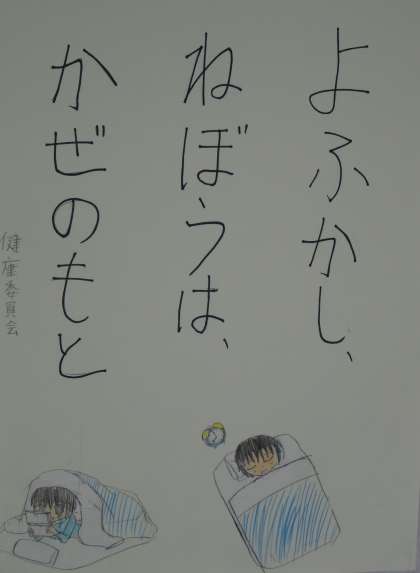 よふかし、
ねぼうは、
かぜのもと
健康委員会